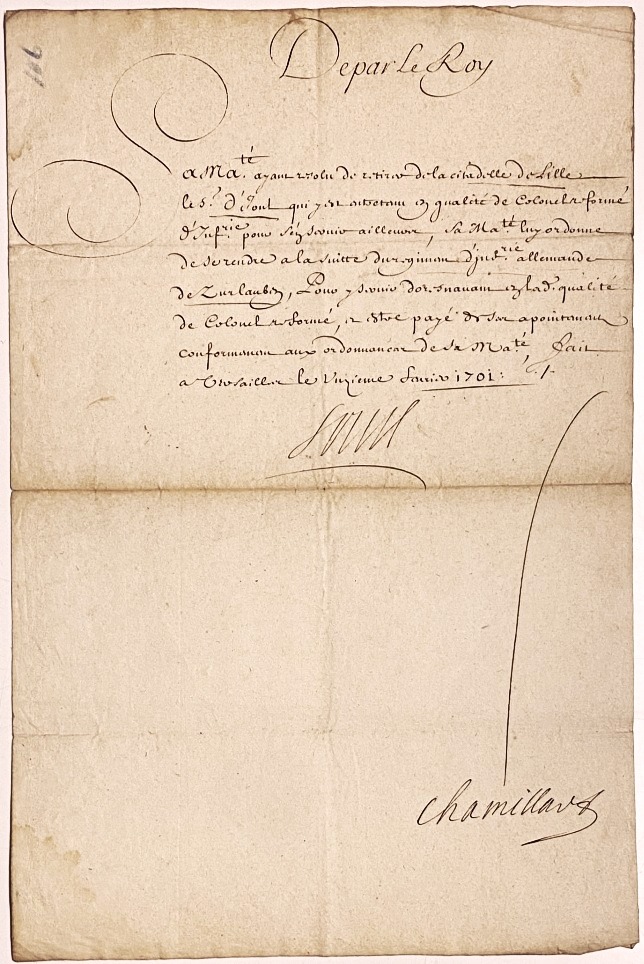 De par le Roy
Sa Ma.té ayant resolu de retirer de la citadelle de Lille
le s.r qui y est entretenu en qualité de Colonel reformé
d'Inf.rie pour s'en servir ailleurs, Sa Ma.té luy ordonne
de se rendre a la suitte du regiment d'inf.rie allemande
de Zurlauben, Pour y servir doresnavant en lad. qualité
de Colonel reformé, et estre payé de ses apointemens
conformement aux ordonnances de Sa Ma.té, Fait
a Versailles le Unzieme fevrier 1701 :
Louis
Chamillart